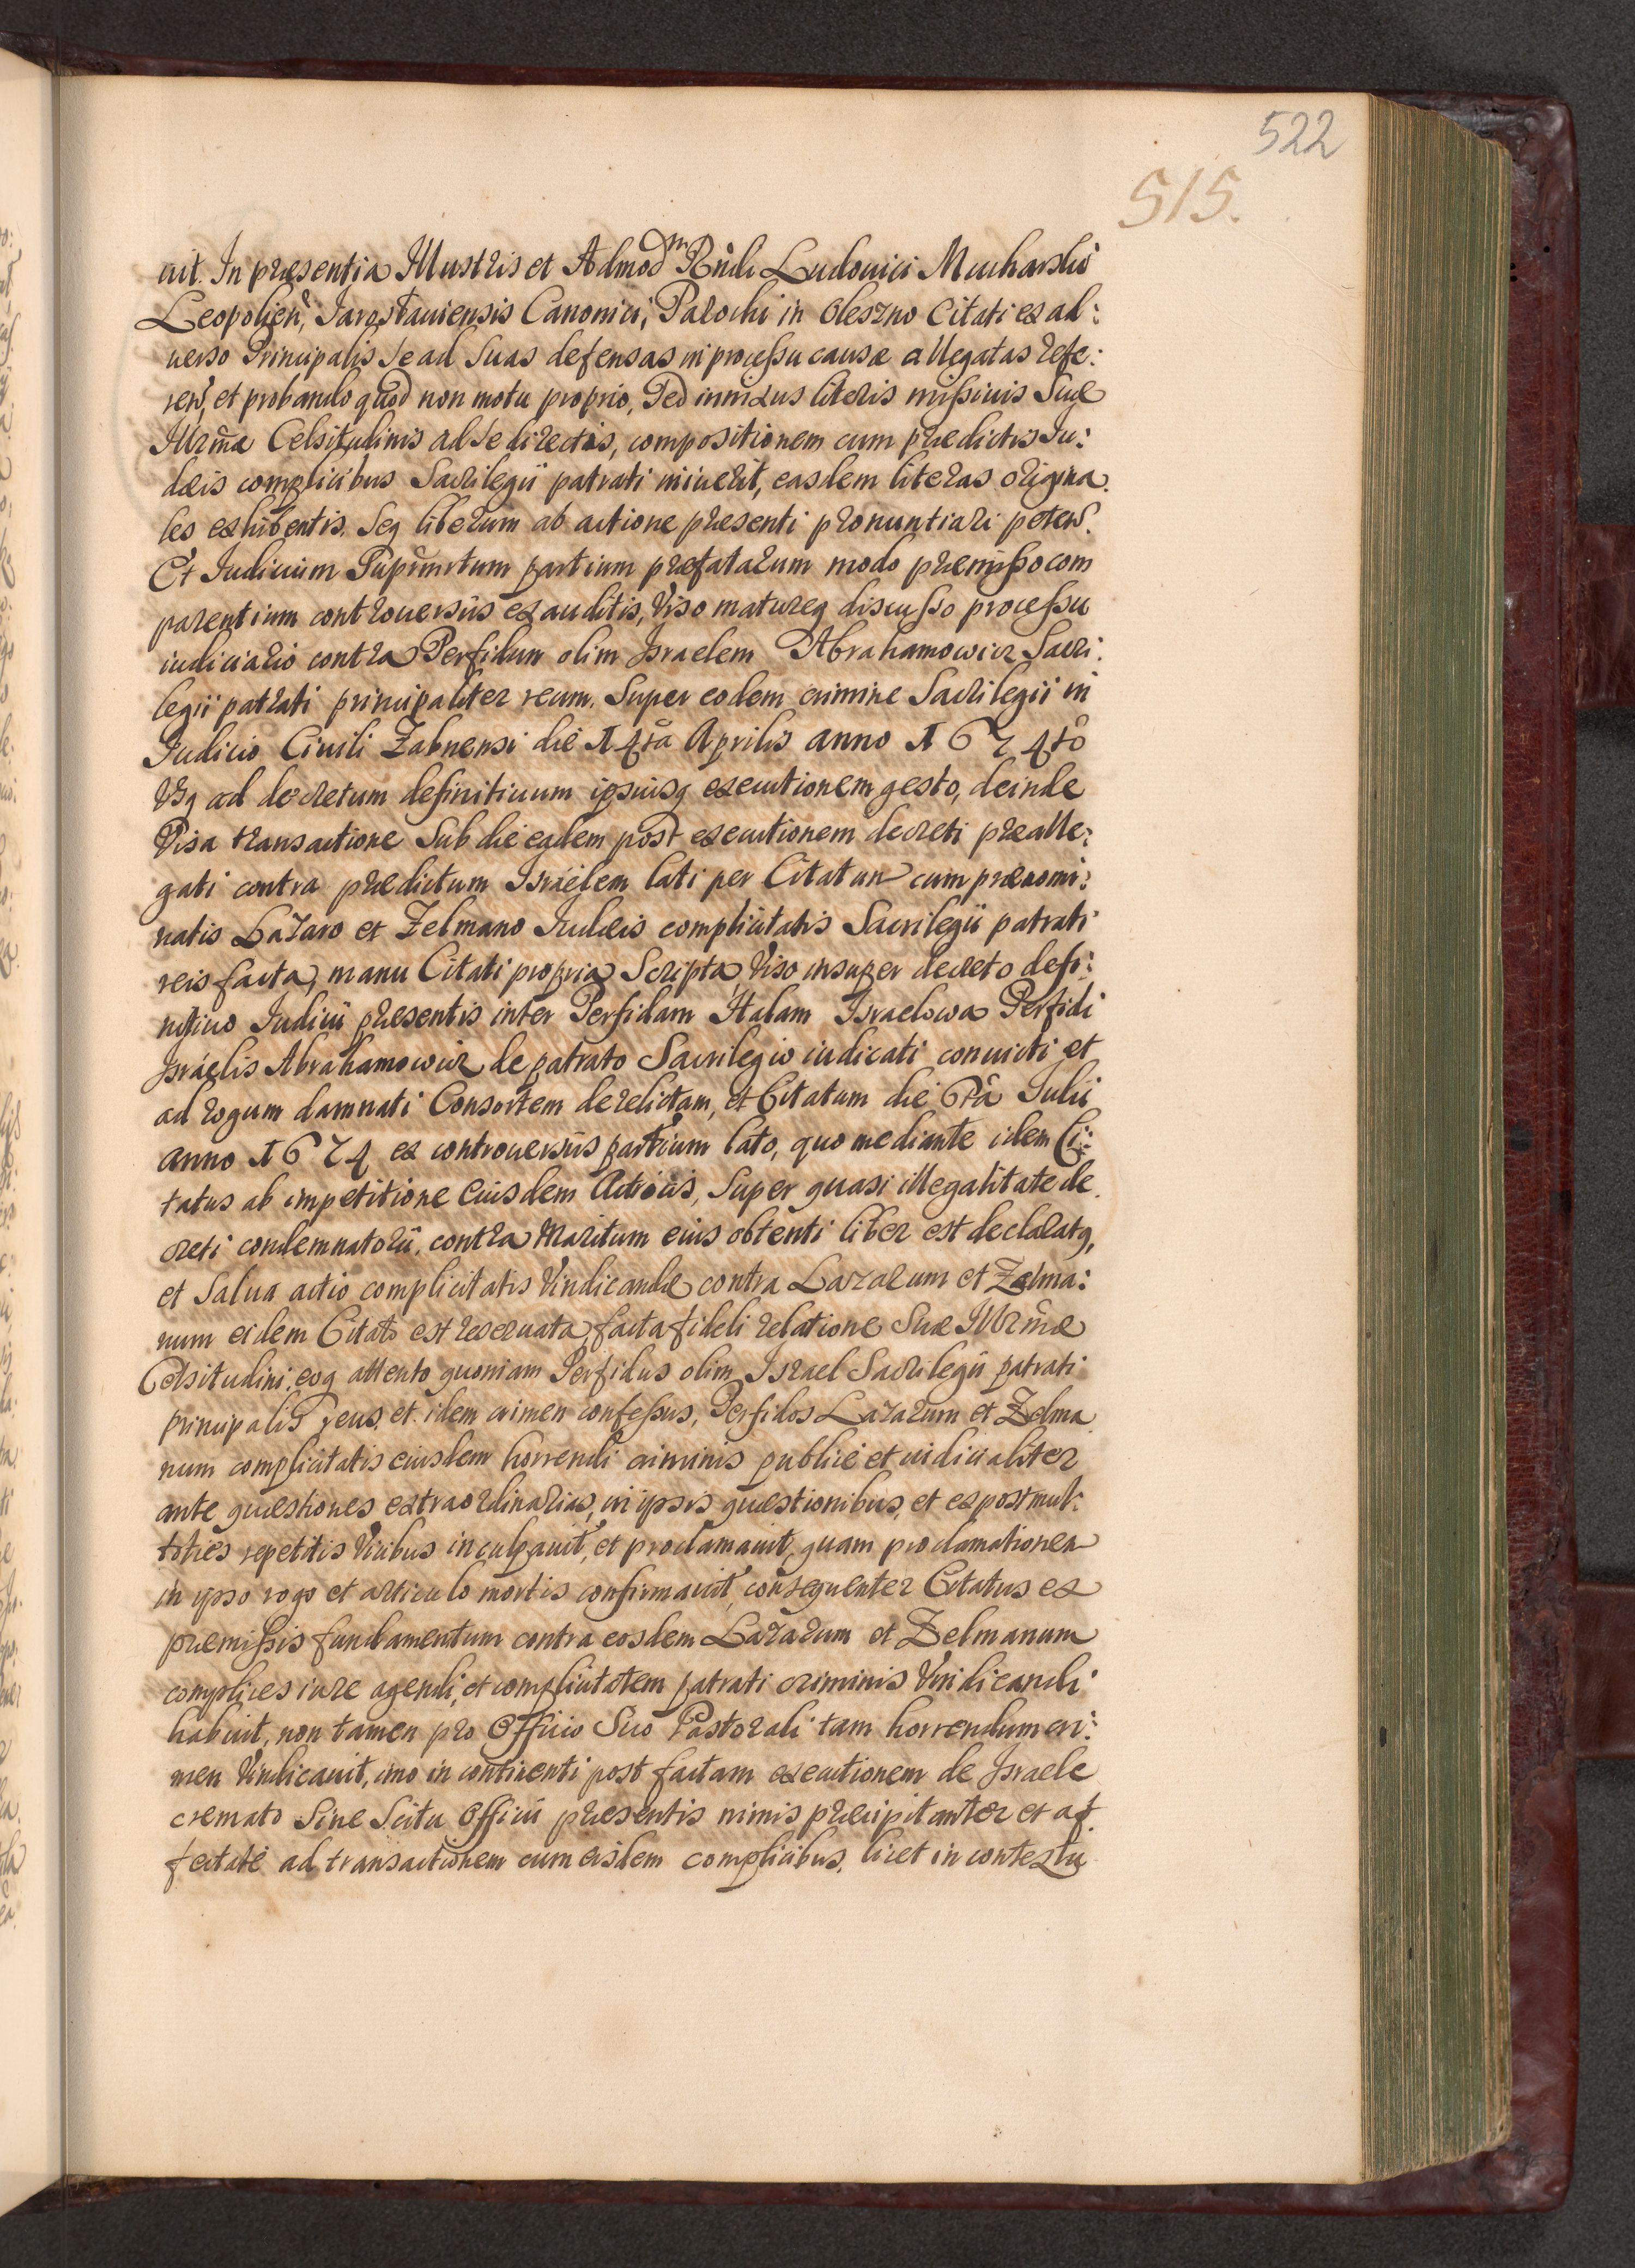 522
515.
uit. In præsentia Illustris et Admod̃m Rñdi Ludouici Mucharski
Leopolień, Jarosłauiensis Canonici, Parochi in Oleszno Citati ex ad:
uerso Principalis se ad suas defensas in processu causæ allegatas refe:
ren̛, et probando quod non motu proprio, Sed innixus literis missiuis Suæ
Illrm̃æ Celsitudinis ad se directis, compositionem cum prædictis Iu:
dæis complicibus Sacrilegii patrati iniuerit, easdem literas origina:
les exhibentis. seq liberum ab actione præsenti pronuntiari peteń.
Et Iudicium Suprañrtum partium præfatarum modo præmisso com
parentium controuersiis exauditis, Viso matureq discusso processu
iudiciario contra Perfidum olim Israelem Abrahamowicz Sacri:
legii patrati principaliter reum. Super eodem crimine Sacrilegii in
Iudicio Ciuili Zabnensi die 14tâ Aprilis anno 1674tô
Vsq ad decretum definitiuum ipsiusq executionem gesto, deinde
Visa transactione Sub die eadem post executionem decreti prealle:
gati contra prædictum Israelem lati per Citatum cum prænomi:
natis Lazaro et Zelmano Iudæis complicitatis Sacrilegii patrati
reis facta, manu Citati propria Scripta, Viso insuper decreto defi:
nitiuo Iudicii præsentis inter Perfidam Halam Israelowa Perfidi
Israelis Abrahamowicz de patrato Sacrilegio iudicati conuicti et
ad rogum damnati Consortem derelictam, et Citatum die 6tâ Iulii
anno 1674 ex controuersiis partium lato, quo mediante idem Ci:
tatus ab impetitione eiusdem Actricis, Super quasi illegalitate de
creti condemnatorii, contra Maritum eius obtenti liber est declaratq,
et Salua actio complicitatis Vindicandæ contra Lazarum et Zelma:
num eidem Citato est reseruata, facta fideli relatione Suæ Illrm̃æ
Celsitudini: eoq attento quoniam Perfidus olim Israel Sacrilegii patrati
principalis reus, et idem crimen confessus, Perfidos Lazarum et Zelma
num complicitatis eiusdem horrendi criminis publicè et iudicialiter
ante quæstiones extraordinarias, in ipsis quæstionibus, et expost mul:
toties repetitis Vicibus inculpauit, et proclamauit, quam proclamationem
in ipso rogo et articulo mortis confirmauit, consequenter Citatus ex
præmissis fundamentum contra eosdem Lazarum et Zelmanum
complices iure agendi, et complicitatem patrati criminis Vindicandi
habuit, non tamen pro Officio Suo Pastorali tam horrendum cri:
men Vindicauit, imo in continenti post factam executionem de Israele
cremato Sine Scitu Officii præsentis nimis præcipitanter et af
fectatè ad transactionem cum eisdem complicibus, licet in contextu